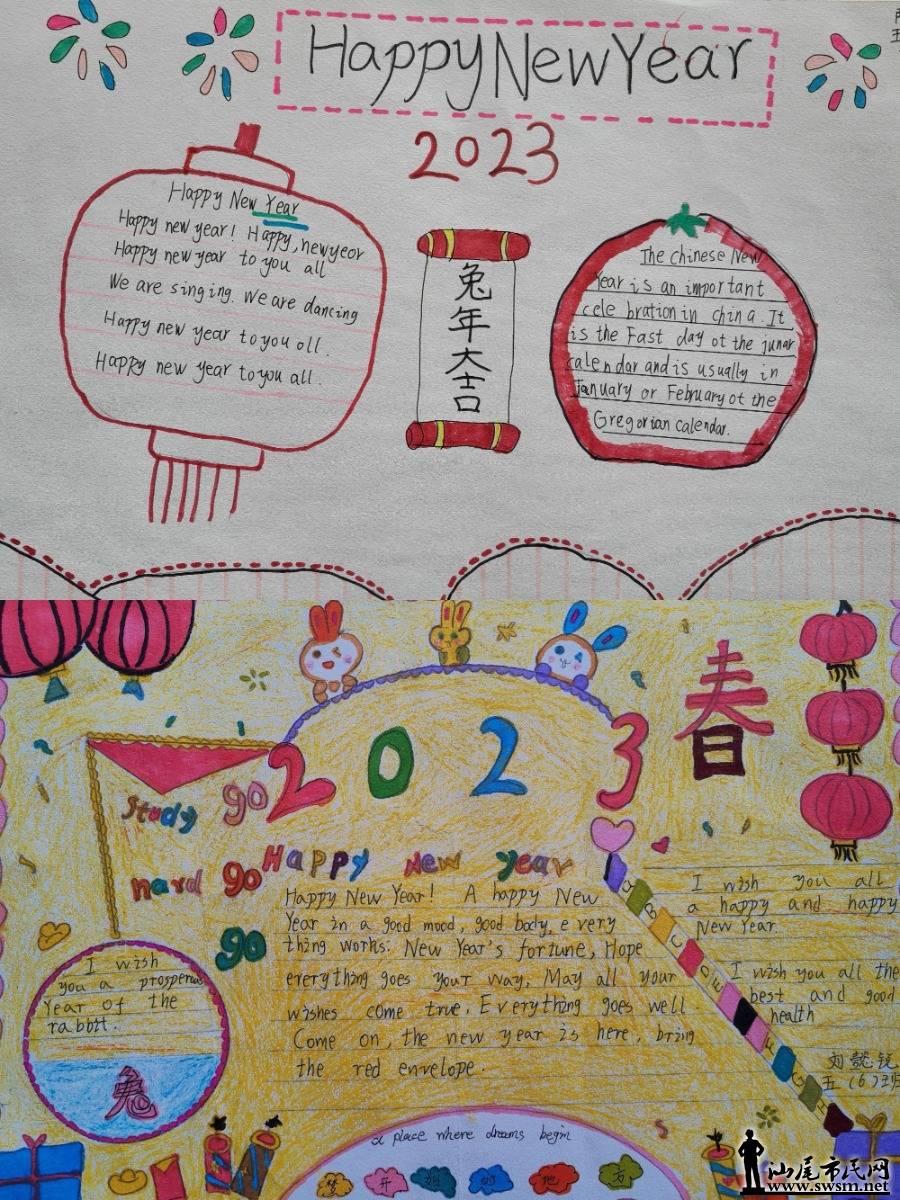 Happy New Year
2023
Happy New Year
Happy new year! Happy, newyeor
Happy new year to you all
We are singing. We are dancing
Happy new year toyou oll.
Happy new year toyou all.
兔年大吉
The chinese New
Year is an important
cele bration in china It
is the Fast day ot the junar
calendar and is usually in
January or February ot the
Gregorian calendar.
春
2023
Study go
hard go
go
Happy New year
Happy New Year! A happy New
Year in a good mood, good body, e very
thing works: New Year's fortune, Hope
everything goes your way, May all your
wishes come true, Everything goes well
Come on, the new year is here, bring
the red envelope.
I wish
you a prosperous
Year of the
rabbit.
兔
I wish you all
a happy and happy
New Year.
I wish you all the
best and good
health
刘懿锐
五(6)班
A B C D E F G H
a place where dreams begin
梦开始的地方
汕尾市民网
www.swsm.net